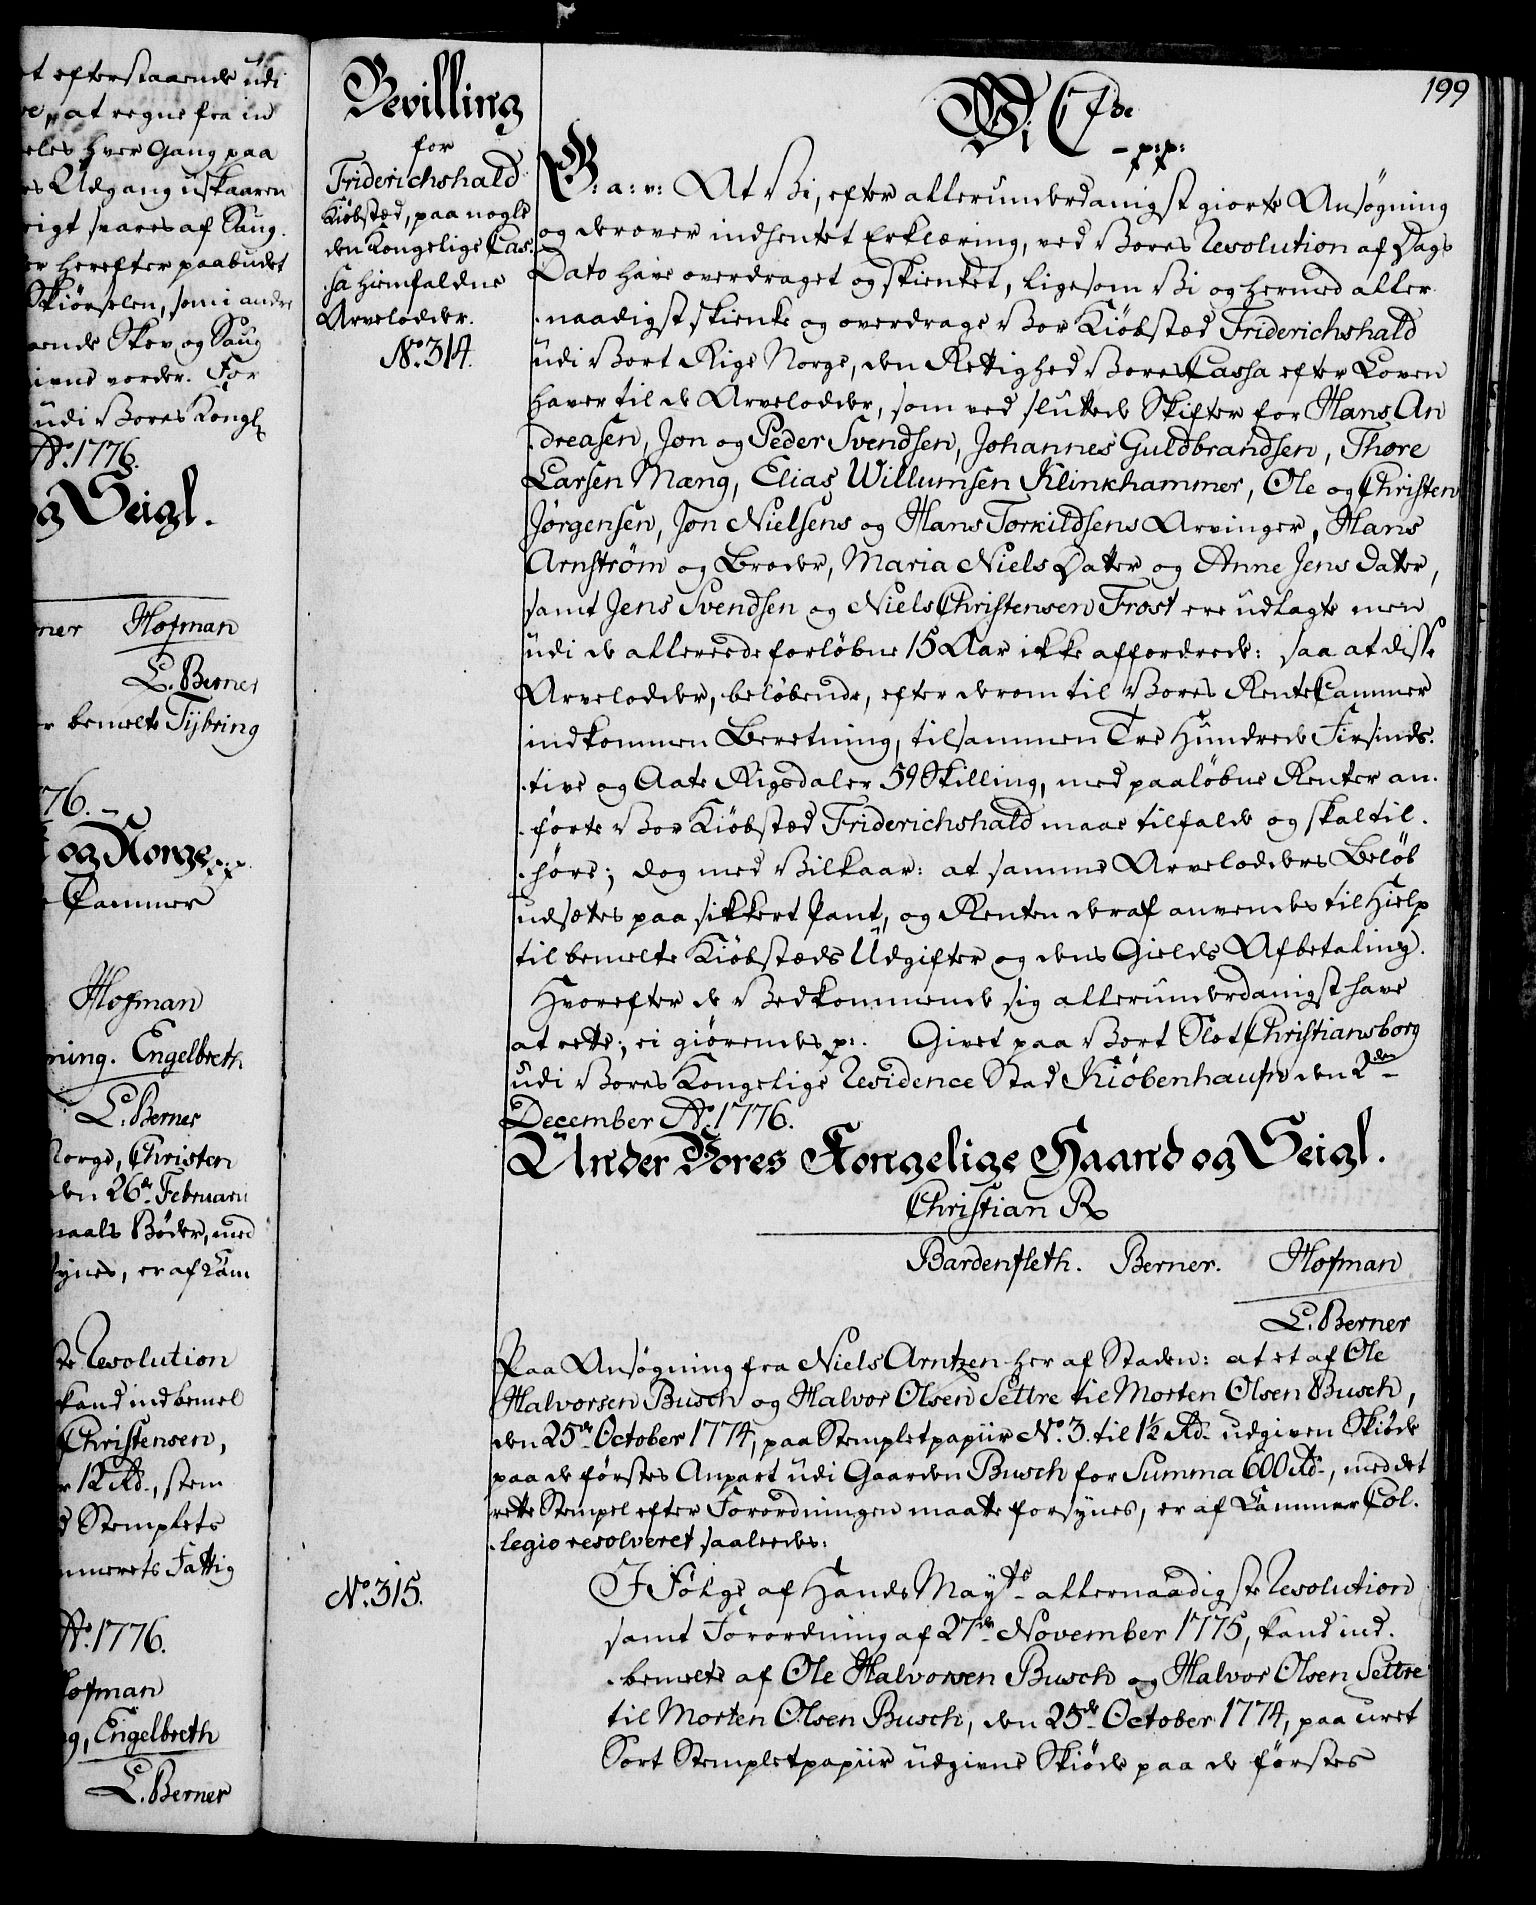 t efterstaaende udi
re, at regne fra in
eles hver Gang paa
es Udgang uskaaren
rigt svares af Saug.
er herefter paabudet
Skiørselen, som i andre
aende Skov og Saug
ivne vorder. For
udi Vores Kongl
Ao. 1776.
og Seigl.
rner Hofman
L. Berner
er bemelte Tijbring
76.
og Norge p:p:
Cammer
Hofman
ning. Engelbreth
L. Berner
Norge, Christen
den 26de Februarii
maals Bøder, med
synes, er af Cam
te Resolution
kand indbemel
Christensen,
r 12 Rd., stem
d Stemplets
merets Fattig
Ao. 1776.
Hofman
g, Engelbreth
L. Berner
199
Bevilling
for
Friderichshald
Kiøbstæd, paa nogle
den Kongelige Cas-
sa hiemfaldne
Arvelodder.
No. 314.
Wi C 7de
- p:p:
G: a: v: At Vi, efter allerunderdanigst giorte Ansøgning
og derover indhentet Erklæring, ved Vores Resolution af Dags
Dato have overdraget og skienket, ligesom Vi og hermed aller-
naadigst skienke og overdrage Vor Kiøbstæd Friderichshald
udi Vort Rige Norge, den Rettighed Vores Cassa efter Loven
haver til de Arvelodder, som ved sluttede Skifter for Hans An
dreasen, Jon og Peder Svendsen, Johannes Guldbrandsen, Thore
Larsen Mæng, Elias Willumsen Klinkhammer, Ole og Christen
Jørgensen, Jon Nielsens og Hans Torkildsens Arvinger, Hans
Arnstrøm og Broder, Maria Niels Datter og Anne Jens Datter,
samt Jens Svendsen og Niels Christensen Frost ere udlagte men
udi de allereede forløbne 15 Aar ikke affordrede: saa at disse
Arvelodder, beløbende, efter derom til Vores Rente Cammer
indkommen Beretning, tilsammen Tre Hundrede Firsinds-
tive og Aate Rigsdaler 59 Skilling, med paaløbne Renter an-
førte Vor Kiøbstæd Friderichshald maae tilfalde og skal til-
høre; dog med Vilkaar: at samme Arvelodders Beløb
udsættes paa sikkert Pant, og Renten deraf anvendes til Hielp
til bemelte Kiøbstæds Udgifter og dens Gields Afbetaling.
Hvorefter de Vedkommende sig allerunderdanigst have
at rette; ei giørendes p:. Givet paa Vort Slot Christiansborg
udi Vores Kongelige Residence Stad Kiøbenhaufn den 2den
December Ao. 1776.
Under Vores Kongelige Haand og Seigl.
Christian R
Bardenfleth. Berner. Hofman
L. Berner
Paa Ansøgning fra Niels Arntzen her af Staden: at et af Ole
Halvorsen Busch og Halvor Olsen Settre til Morten Olsen Busch,
den 25de October 1774, paa Stempletpapiir No. 3. til 1½ Rd. udgiven Skiøde
paa de førstes Anpart udi Gaarden Busch for Summa 600 Rd., med det
rette Stempel efter Forordningen maatte forsynes, er af Cammer Col-
legio resolveret saaledes:
No. 315.
I Følge af Hands Mayts allernaadigste Resolution
samt Forordning af 27de November 1775, kand ind-
bemelte af Ole Halvorsen Busch og Halvor Olsen Settre
til Morten Olsen Busch, den 25de October 1774, paa uret
Sort Stempletpapiir udgivne Skiøde paa de førstes